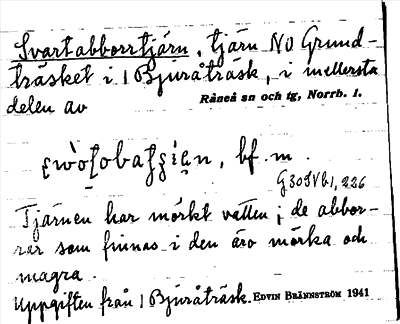 Svartabborrtjärn, tjärn NO Grund-
träsket i 1 Bjuråträsk, i mellersta
delen av
Råneå sn och tg, Norrb. l.
bf. m.
G 30 SV b 1, 226
Tjärnen har mörkt vatten; de abbor-
rar som finnas i den äro mörka och
magra.
Uppgiften från 1 Bjuråträsk. EDVIN BRÄNNSTRÖM 1941